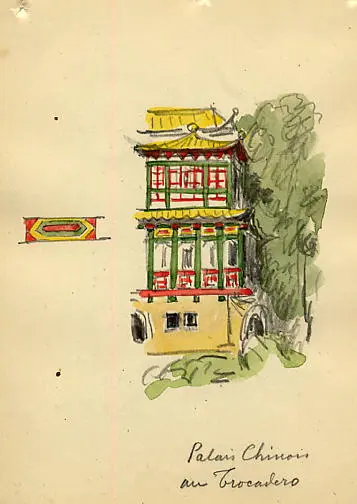 Palais Chinois
au Trocadero